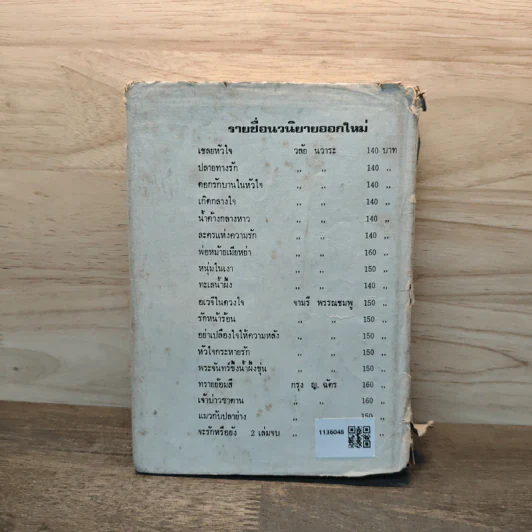 รายชื่อนวนิยายออกใหม่
เชลยหัวใจ วลัย นวาระ 140 บาท
ปลายทางรัก ,, ,, 140 ,,
ดอกรักบานในหัวใจ ,, ,, 140 ,,
เกิดกลางใจ ,, ,, 140 ,,
น้ำค้างกลางหาว ,, ,, 140 ,,
ละครแห่งความรัก ,, ,, 140 ,,
พ่อหม้ายเมียหย่า ,, ,, 160 ,,
หนุ่มในเงา ,, ,, 150 ,,
ทะเลน้ำผึ้ง ,, ,, 140 ,,
อเวจีในดวงใจ จามรี พรรณชมพู 150 ,,
รักหน้าร้อน ,, ,, 150 ,,
อย่าเปลืองใจให้ความหลัง ,, ,, 150 ,,
หัวใจกระหายรัก ,, ,, 150 ,,
พระจันทร์ซึ่งน้ำผึ้งขุ่น ,, ,, 150 ,,
ทรายย้อมสี กรุง ญ. ฉัตร 160 ,,
เจ้าบ่าวซาตาน ,, ,, 160 ,,
แมวกับปลาย่าง ,, ,, 150 ,,
จะรักหรือยัง 2 เล่มจบ ,, ,,
1136046